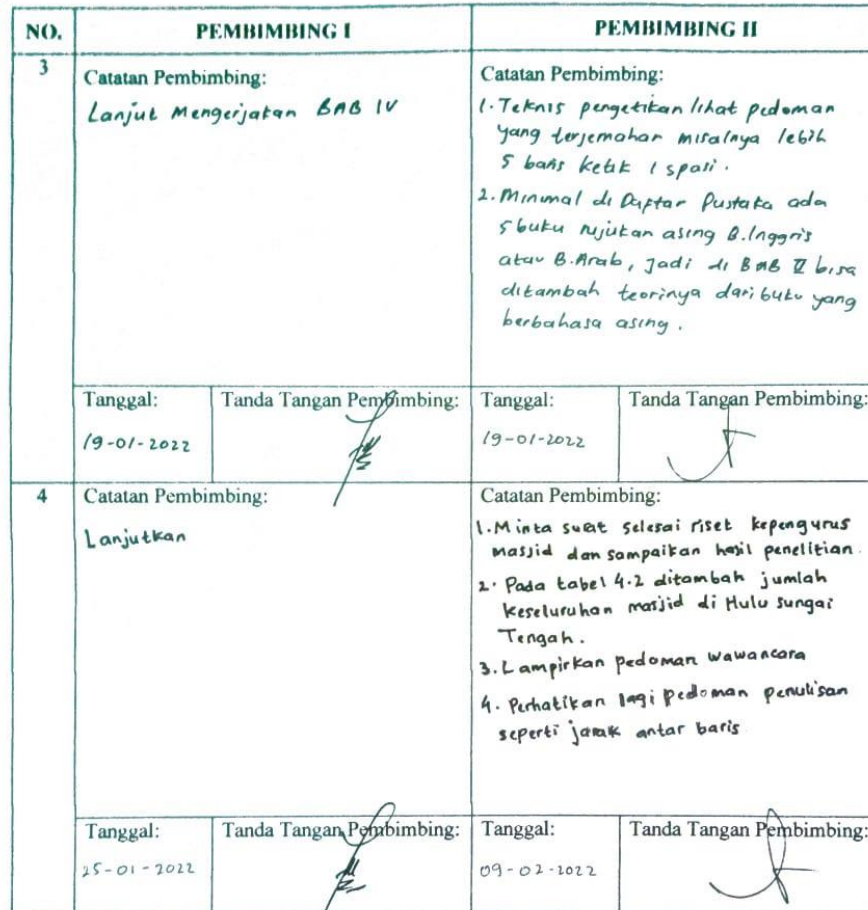 NO.
PEMBIMBING I
PEMBIMBING II
3
Catatan Pembimbing:
Lanjut Mengerjakan BAB IV
Catatan Pembimbing:
1. Teknis pengetikan lihat pedoman
yang terjemahan misalnya lebih
5 baris ketik 1 spasi.
2. Minimal di Daftar Pustaka ada
5 buku rujukan asing B.Inggris
atau B.Arab, Jadi di BAB II bisa
ditambah teorinya dari buku yang
berbahasa asing.
Tanggal:
19-01-2022
Tanda Tangan Pembimbing:
Tanggal:
19-01-2022
Tanda Tangan Pembimbing:
4
Catatan Pembimbing:
Lanjutkan
Catatan Pembimbing:
1. Minta surat selesai riset kepengurus
masjid dan sampaikan hasil penelitian.
2. Pada tabel 4.2 ditambah jumlah
keseluruhan masjid di Hulu Sungai
Tengah.
3. Lampirkan pedoman wawancara
4. Perhatikan lagi pedoman penulisan
seperti jarak antar baris
Tanggal:
25-01-2022
Tanda Tangan Pembimbing:
Tanggal:
09-02-2022
Tanda Tangan Pembimbing: